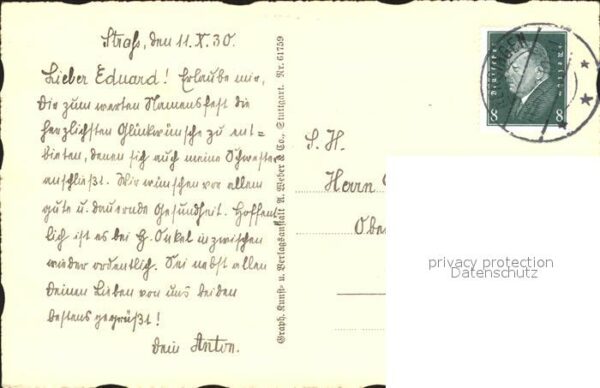 Straß, den 11.X.30.
Lieber Eduard! Erlaube mir,
Dir zum werten Namensfest die
herzlichsten Glückwünsche zu ent=
bieten, denen sich auch meine Schwester
anschließt. Wir wünschen vor allem
gute u. dauernde Gesundheit. Hoffent=
lich ist es bei H. Onkel inzwischen
wieder ordentlich. Sei nebst allen
Deinen Lieben von uns beiden
bestens gegrüßt!
Dein Anton.
Graph. Kunst- u. Verlagsanstalt A. Weber & Co., Stuttgart. Nr. 61759
Deutsches Reich
8 8
S. H.
Herrn
Ober
privacy protection
Datenschutz